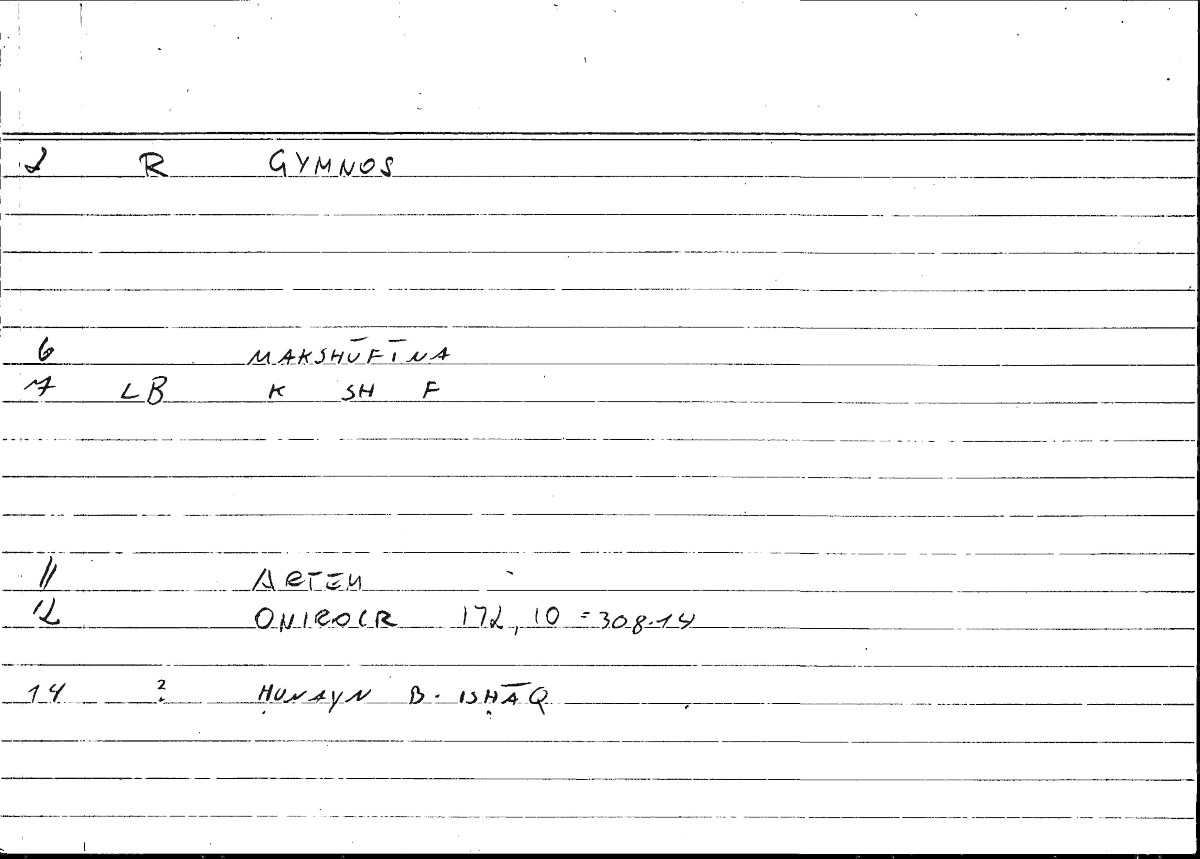 2 R GYMNOS
6 MAKSHŪFĪNA
7 LB K SH F
11 ARTEM
12 ONIROCR 172,10 = 308.14
14 ? ḤUNAYN B. ISḤĀQ